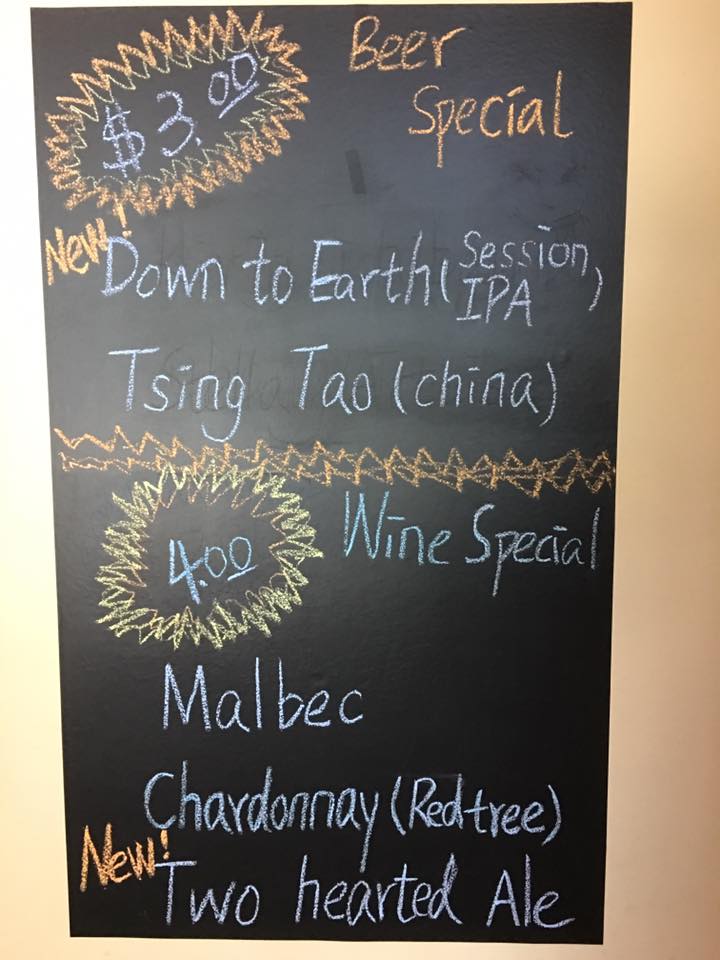 $3.00
Beer
Special
New!
Down to Earth (Session
IPA)
Tsing Tao (china)
4.00
Wine Special
Malbec
Chardonnay (Redtree)
New!
Two hearted Ale